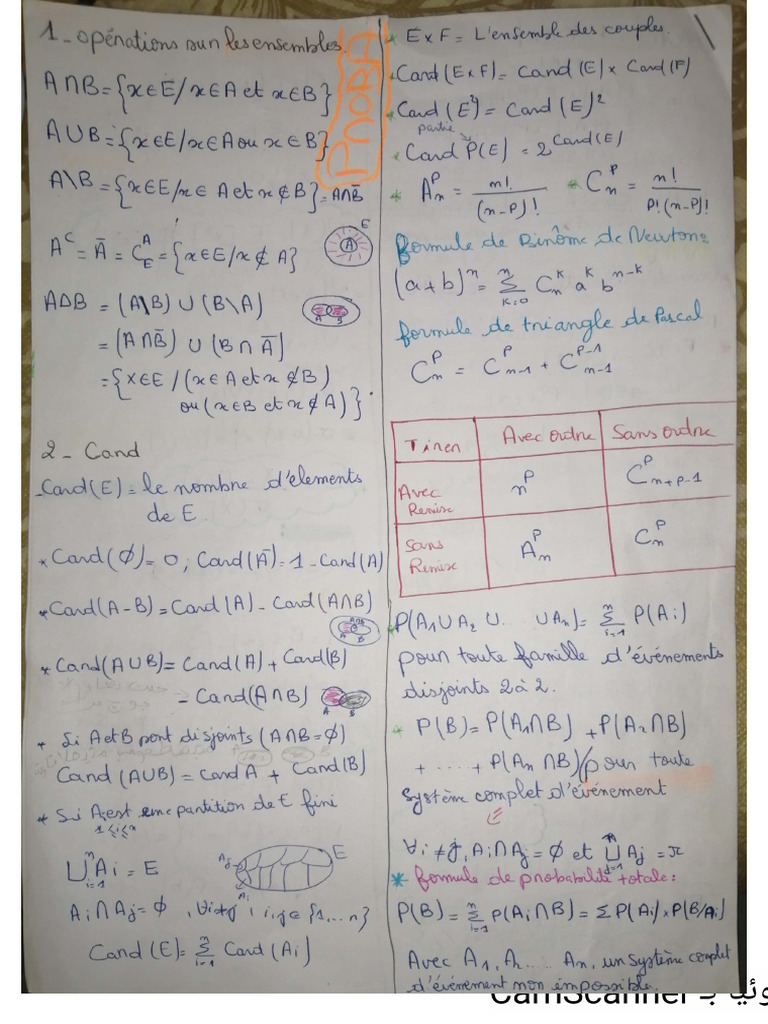 PROBA
1_ opérations sur les ensembles.
A∩B = {x∈E/x∈A et x∈B}
A∪B = {x∈E/x∈A ou x∈B}
A\B = {x∈E/x∈A et x∉B} = A∩B̄
Aᶜ = Ā = C_E^A = {x∈E/x∉A}
E
A
A∆B = (A\B) ∪ (B\A)
A B
= (A∩B̄) ∪ (B∩Ā)
= {x∈E/(x∈A et x∉B)
ou (x∈B et x∉A)}.
2_ Card
_Card(E) = le nombre d'elements
de E.
* Card(∅) = 0, Card(Ā) = 1 - Card(A)
* Card(A-B) = Card(A) - Card(A∩B)
A∩B
A B
* Card(A∪B) = Card(A) + Card(B)
- Card(A∩B)
A B
* Si A et B sont disjoints (A∩B=∅)
Card(A∪B) = Card A + Card(B)
* Si Ai est une partition de E fini
1≤i≤n
⋃_{i=1}^n Ai = E
Aj
E
Ai
Ai∩Aj = ∅, ∀i≠j i,j∈{1,...n}
Card(E) = ∑_{i=1}^n Card(Ai)
* E×F = L'ensemble des couples.
* Card(E×F) = Card(E) × Card(F)
* Card(E²) = Card(E)²
partie
* Card P(E) = 2^{Card(E)}
* A_n^p = n!/(n-p)! * C_n^p = n!/(p!(n-p)!)
formule de Binôme de Newton:
(a+b)^n = ∑_{k=0}^n C_n^k a^k b^{n-k}
formule de triangle de Pascal
C_n^p = C_{n-1}^p + C_{n-1}^{p-1}
Tirer Avec ordre Sans ordre
Avec Remise n^p C_{n+p-1}^p
Sans Remise A_n^p C_n^p
* P(A1∪A2∪.. ∪An) = ∑_{i=1}^n P(Ai)
pour toute famille d'événements
disjoints 2 à 2.
* P(B) = P(A1∩B) + P(A2∩B)
+ ..... + P(An∩B)/pour toute
Système complet d'événement
∀i≠j, Ai∩Aj = ∅ et ⋃_{j=1}^n Aj = Ω
* formule de probabilité totale:
P(B) = ∑_{i=1}^n P(Ai∩B) = ∑P(Ai)×P(B/Ai)
Avec A1, A2.... An, un système complet
d'événement non impossible.
CamScanner بـ